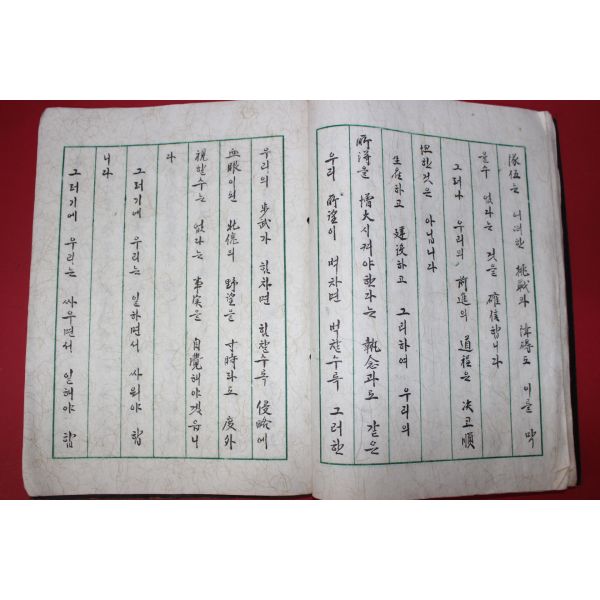 隊伍는 이러한 挑戰과 障碍도 이를 막
을수 없다는 것을 確信합니다
그러나 우리의 前進의 道程은 決코 順
坦한것은 아닙니다
生産하고 建設하고 그리하여 우리의
所得을 增大시켜야한다는 執念과도 같은
우리 所望이 벅차면 벅찰수록 그러한
우리의 步武가 힘차면 힘찰수록 侵略에
血眼이된 北傀의 野望을 寸時라도 度外
視할수는 없다는 事実을 自覺해야겠읍니
다
그러기에 우리는 일하면서 싸워야 합
니다
그러기에 우리는 싸우면서 일해야 합